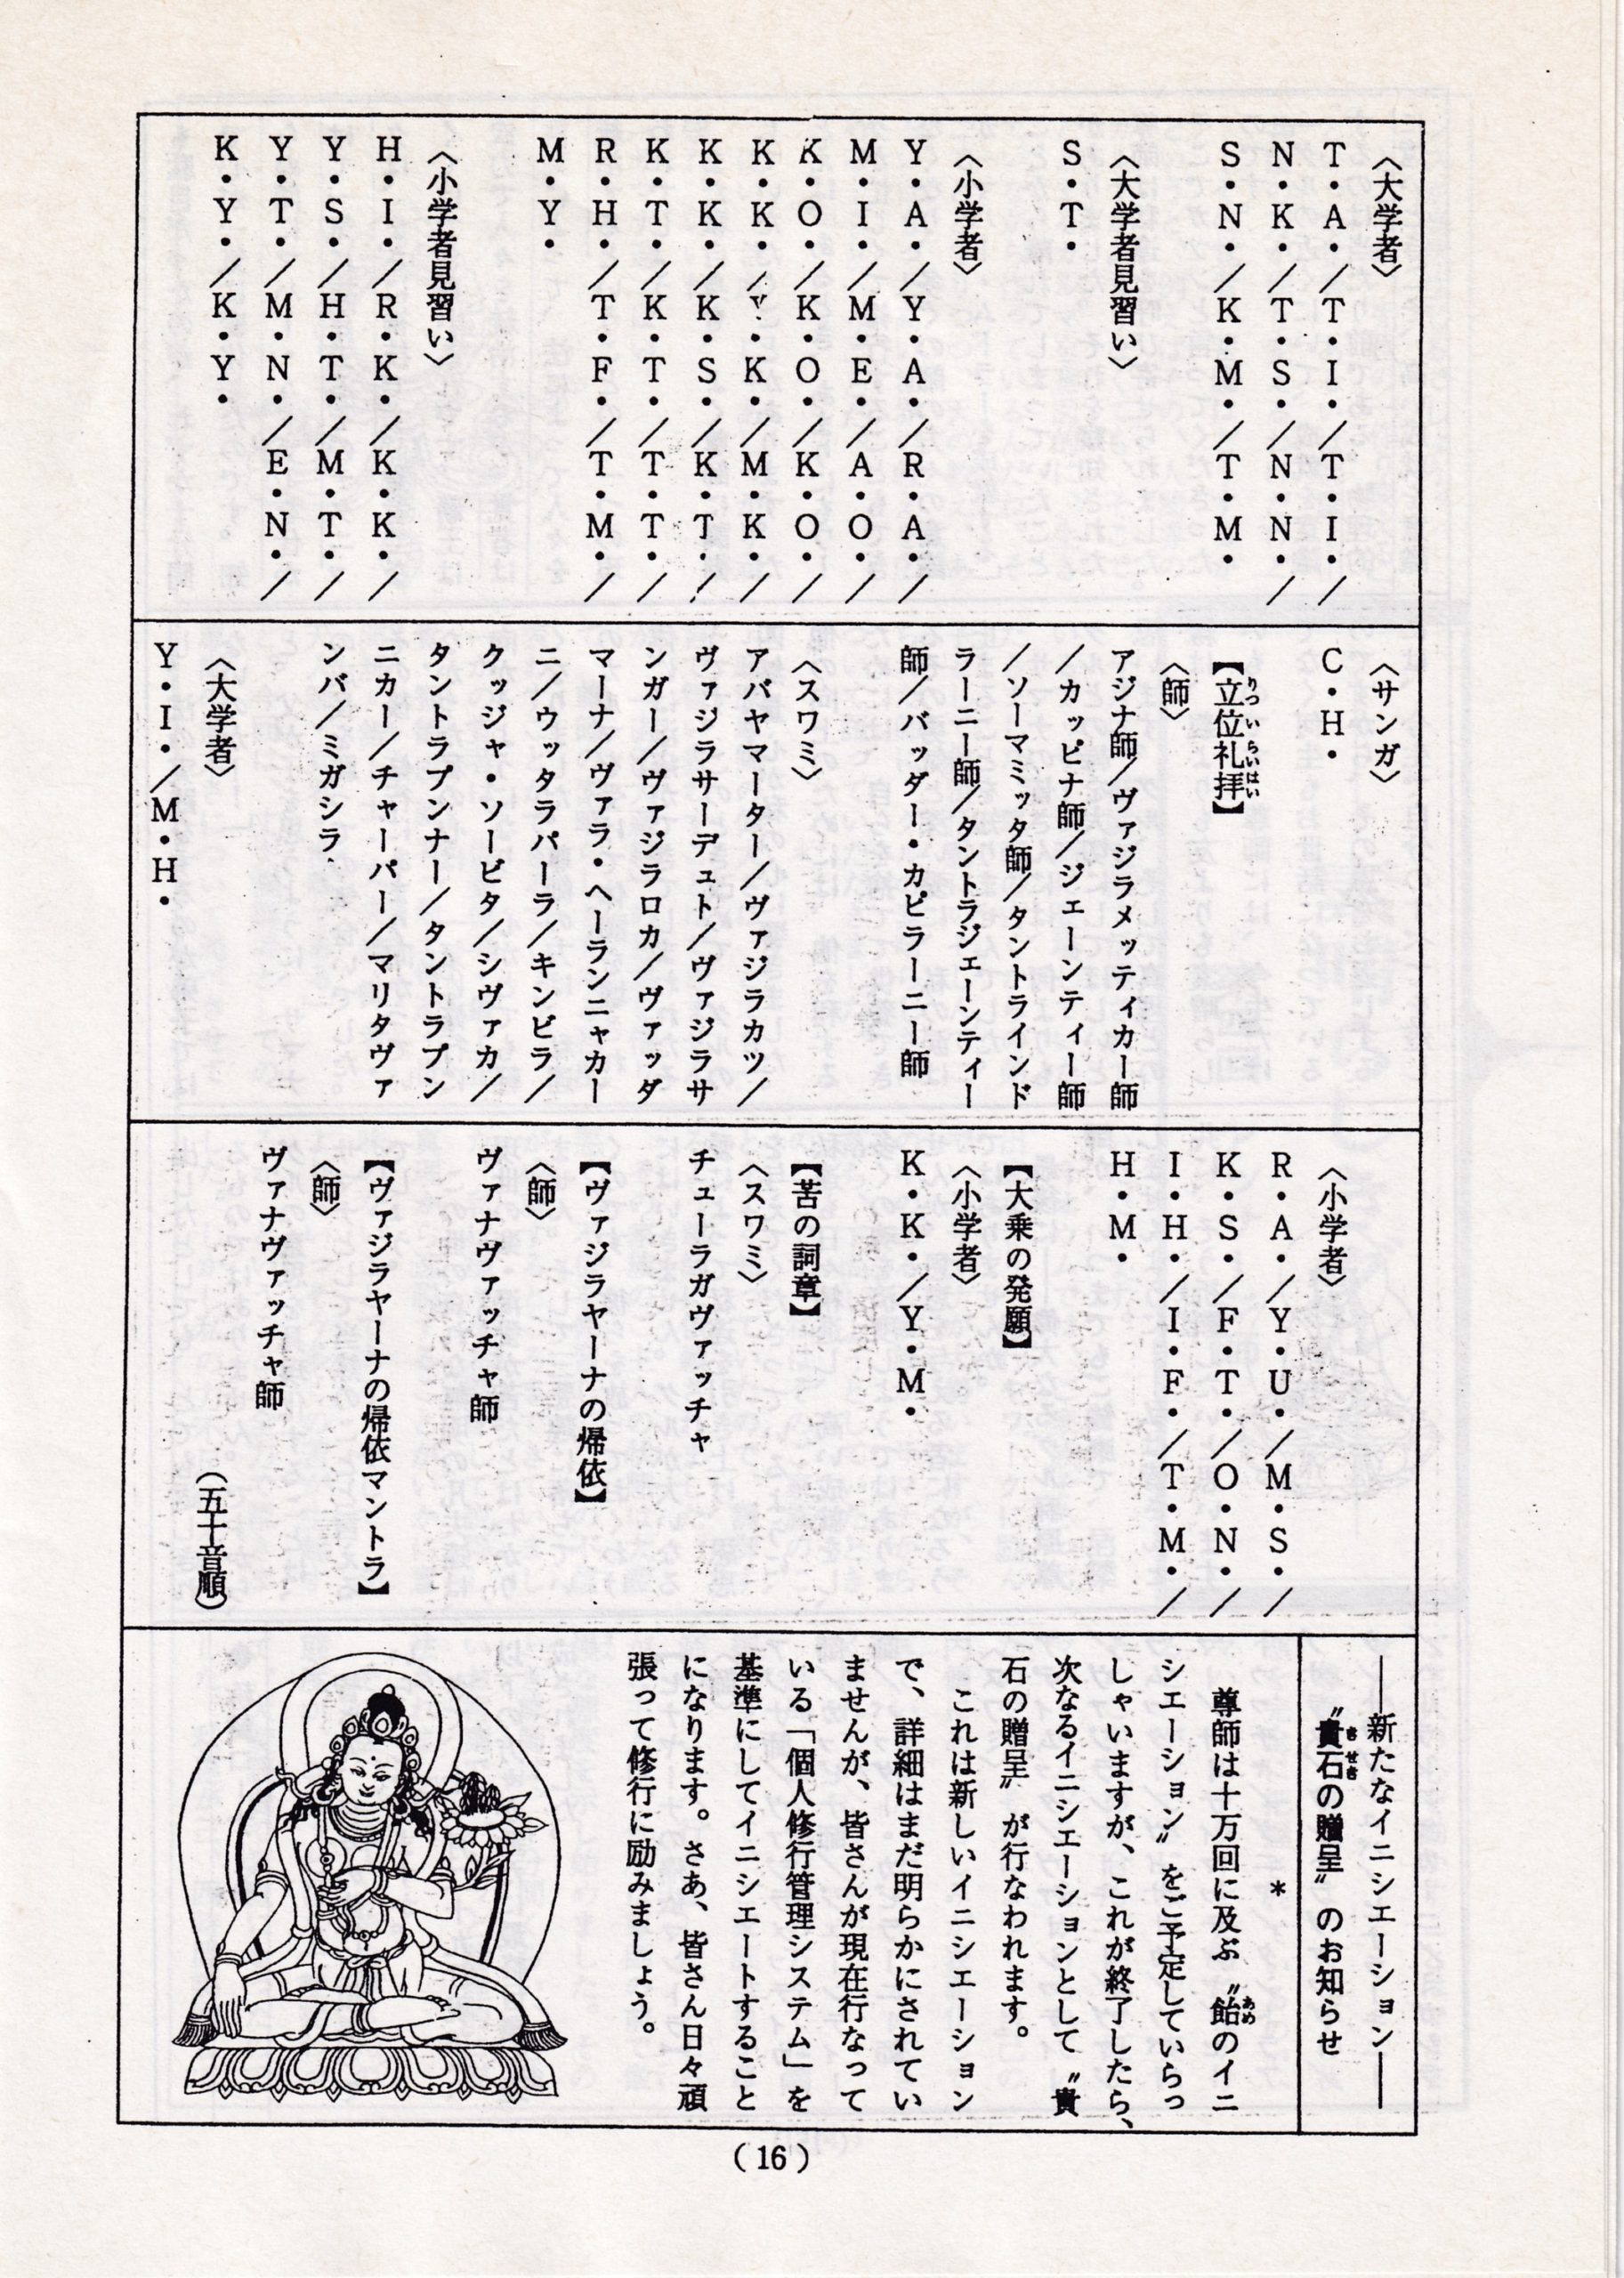 〈大学者〉
T・A・／T・I・／T・I・／
N・K・／T・S・／N・N・／
S・N・／K・M・／T・M・
〈大学者見習い〉
S・T・
〈小学者〉
Y・A・／Y・A・／R・A・／
M・I・／M・E・／A・O・／
K・O・／K・O・／K・O・／
K・K・／Y・K・／M・K・／
K・K・／K・S・／K・T・／
K・T・／K・T・／T・T・／
R・H・／T・F・／T・M・／
M・Y・
〈小学者見習い〉
H・I・／R・K・／K・K・／
Y・S・／H・T・／M・T・／
Y・T・／M・N・／E・N・／
K・Y・／K・Y・
〈サンガ〉
C・H・
【立位礼拝】
りついらいはい
〈師〉
アジナ師／ヴァジラメッティカー師
／カッピナ師／ジェーンティー師
／ソーマミッタ師／タントラインド
ラーニー師／タントラジェーンティー
師／バッダー・カピラーニー師
〈スワミ〉
アバヤマーター／ヴァジラカツ／
ヴァジラサーデュト／ヴァジラサ
ンガー／ヴァジラロカ／ヴァッダ
マーナ／ヴァラ・ヘーランニャカー
ニ／ウッタラパーラ／キンビラ／
クッジャ・ソービタ／シヴァカ／
タントラプンナー／タントラプン
ニカー／チャーパー／マリタヴァ
ンバ／ミガシラ
〈大学者〉
Y・I・／M・H・
〈小学者〉
R・A・／Y・U・／M・S・／
K・S・／F・T・／O・N・／
I・H・／I・F・／T・M・／
H・M・
【大乗の発願】
〈小学者〉
K・K・／Y・M・
【苦の詞章】
〈スワミ〉
チューラガヴァッチャ
【ヴァジラヤーナの帰依】
〈師〉
ヴァナヴァッチャ師
【ヴァジラヤーナの帰依マントラ】
〈師〉
ヴァナヴァッチャ師
（五十音順）
――新たなイニシエーション――
〝貴石の贈呈〟のお知らせ
きせき
＊
尊師は十万回に及ぶ〝飴のイニ
あめ
シエーション〟をご予定していらっ
しゃいますが、これが終了したら、
次なるイニシエーションとして〝貴
石の贈呈〟が行なわれます。
これは新しいイニシエーション
で、詳細はまだ明らかにされてい
ませんが、皆さんが現在行なって
いる「個人修行管理システム」を
基準にしてイニシエートすること
になります。さあ、皆さん日々頑
張って修行に励みましょう。
（16）